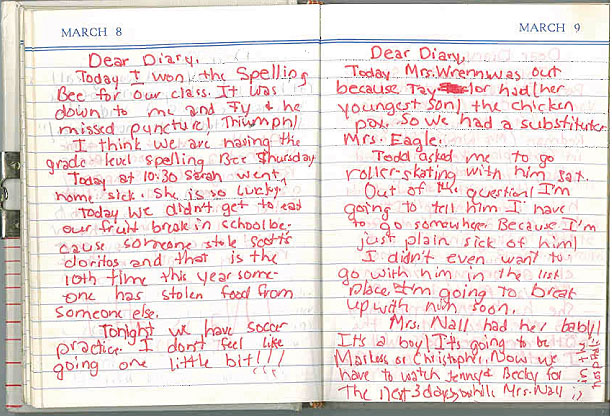 MARCH 8
Dear Diary,
Today I won the Spelling
Bee for our class. It was
down to me and Ty & he
missed puncture! Triumph!
I think we are having the
grade level spelling Bee Thursday
Today at 10:30 Sarah went
home sick. She is so lucky.
Today we didn't get to eat
our fruit break in school be-
cause someone stole Scott's
doritos and that is the
10th time this year some-
one has stolen food from
someone else.
Tonight we have soccer
practice. I don't feel like
going one little bit!!!
MARCH 9
Dear Diary,
Today Mrs. Wrenn was out
because Taylor had (her
youngest son) the chicken
pox. So we had a substitute
Mrs. Eagle.
Todd asked me to go
roller skating with him sat.
Out of the question! I'm
going to tell him I have
to go somewhere Because I'm
just plain sick of him!
I didn't even want to
go with him in the 1st
place. I'm going to break
up with him soon.
Mrs. Nall had her baby!
It's a boy! It's going to be
Markess or Christopher. Now we
have to watch Jenny & Becky for
the next 3 days while Mrs. Nall is
in the hospital.